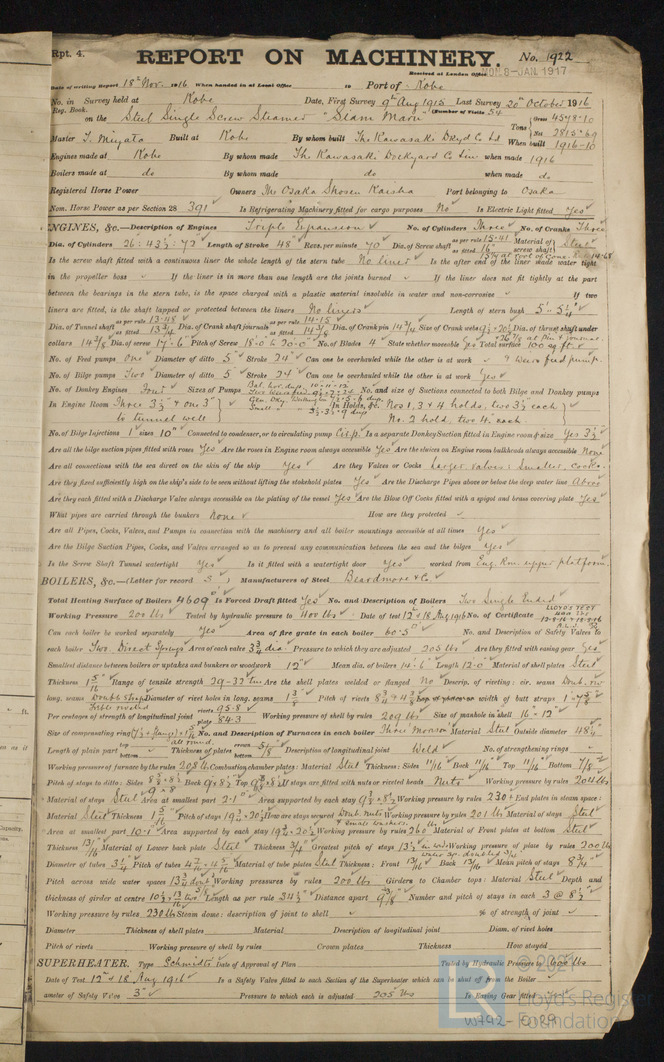 Rpt. 4. REPORT ON MACHINERY. No. 1922
Received at London Office MON. 8-JAN 1917
Date of writing Report 18th Nov. 1916 When handed in at Local Office to Port of Kobe
No. in Survey held at Kobe Date, First Survey 9th Aug 1915 Last Survey 20th October 1916
Reg. Book. (Number of Visits 54
on the Steel Single Screw Steamer "Siam Maru" Tons Gross 4578-10 Net 2815-69
Master T. Miyata Built at Kobe By whom built The Kawasaki Dkyd Co Ltd When built 1916-10
Engines made at Kobe By whom made The Kawasaki Dockyard Co Lim when made 1916
Boilers made at do By whom made do when made do
Registered Horse Power Owners The Osaka Shosen Kaisha Port belonging to Osaka
Nom. Horse Power as per Section 28 391 Is Refrigerating Machinery fitted for cargo purposes No Is Electric Light fitted Yes
ENGINES, &c.—Description of Engines Triple Expansion No. of Cylinders Three No. of Cranks Three
Dia. of Cylinders 26: 43½: 72 Length of Stroke 48" Revs. per minute 70 Dia. of Screw shaft as per rule 15-41 as fitted 16" Material of screw shaft Steel
Is the screw shaft fitted with a continuous liner the whole length of the stern tube No liner Is the after end of the liner made water tight
in the propeller boss If the liner is in more than one length are the joints burned If the liner does not fit tightly at the part
between the bearings in the stern tube, is the space charged with a plastic material insoluble in water and non-corrosive If two
liners are fitted, is the shaft lapped or protected between the liners No liners Length of stern bush 5'-5¼"
Dia. of Tunnel shaft as per rule 13-48 as fitted 13¾ Dia. of Crank shaft journals as per rule 14-15 as fitted 14¾ Dia. of Crank pin 14¾ Size of Crank webs Dia. of thrust shaft under
collars 14⅜ Dia. of screw 17'-6" Pitch of Screw 18-0 to 20-0" No. of Blades 4 State whether moveable Yes Total surface 100 sq ft.
No. of Feed pumps One Diameter of ditto 5" Stroke 24" Can one be overhauled while the other is at work Weirs feed pump.
No. of Bilge pumps Two Diameter of ditto 5" Stroke 24" Can one be overhauled while the other is at work Yes
No. of Donkey Engines Four Sizes of Pumps No. and size of Suctions connected to both Bilge and Donkey pumps
In Engine Room Three 3½" & one 3" In Holds, &c. Nos 1, 3 & 4 holds, two 3½" each
to tunnel well No. 2 hold, two 4" each
No. of Bilge Injections 1 sizes 10" Connected to condenser, or to circulating pump Circ. p. Is a separate Donkey Suction fitted in Engine room & size Yes 3½"
Are all the bilge suction pipes fitted with roses Yes Are the roses in Engine room always accessible Yes Are the sluices on Engine room bulkheads always accessible None
Are all connections with the sea direct on the skin of the ship Yes Are they Valves or Cocks Larger, valves: Smaller, cocks.
Are they fixed sufficiently high on the ship's side to be seen without lifting the stokehold plates Yes Are the Discharge Pipes above or below the deep water line Above
Are they each fitted with a Discharge Valve always accessible on the plating of the vessel Yes Are the Blow Off Cocks fitted with a spigot and brass covering plate Yes
What pipes are carried through the bunkers None How are they protected
Are all Pipes, Cocks, Valves, and Pumps in connection with the machinery and all boiler mountings accessible at all times Yes
Are the Bilge Suction Pipes, Cocks, and Valves arranged so as to prevent any communication between the sea and the bilges Yes
Is the Screw Shaft Tunnel watertight Yes Is it fitted with a watertight door Yes worked from Eng. Rm. upper platform.
BOILERS, &c.—(Letter for record S) Manufacturers of Steel Beardmore & Co.
Total Heating Surface of Boilers 4609 Is Forced Draft fitted Yes No. and Description of Boilers Two Single Ended
Working Pressure 200 lbs Tested by hydraulic pressure to 400 lbs Date of test 12th & 18 Aug 1916 No. of Certificate LLOYD'S TEST
Can each boiler be worked separately Yes Area of fire grate in each boiler 60.5 No. and Description of Safety Valves to
each boiler Two Direct Springs Area of each valve 3¾ dia. Pressure to which they are adjusted 205 lbs Are they fitted with easing gear Yes
Smallest distance between boilers or uptakes and bunkers or woodwork 12" Mean dia. of boilers 14'-6" Length 12-0" Material of shell plates Steel
Thickness 1 5/16 Range of tensile strength 29-33 tons Are the shell plates welded or flanged No Descrip. of riveting: cir. seams Doub. riv.
long. seams Double Strap Treble riveted Diameter of rivet holes in long. seams 1⅜ Pitch of rivets 8¾ & 4⅜ Lap of plates or width of butt straps
Per centages of strength of longitudinal joint rivets 95-8 plate 84.3 Working pressure of shell by rules 209 lbs Size of manhole in shell 16" - 12"
Size of compensating ring No. and Description of Furnaces in each boiler Three Morison Material Steel Outside diameter 48½
Length of plain part top bottom Thickness of plates crown bottom 5/8 Description of longitudinal joint Weld No. of strengthening rings
Working pressure of furnace by the rules 208 lbs Combustion chamber plates: Material Steel Thickness: Sides 11/16 Back 11/16 Top 11/16 Bottom 7/8
Pitch of stays to ditto: Sides Back Top If stays are fitted with nuts or riveted heads Nuts Working pressure by rules 204 lbs
Material of stays Steel Area at smallest part 2.1 Area supported by each stay Working pressure by rules 230 End plates in steam space:
Material Steel Thickness 1 5/16 Pitch of stays How are stays secured Doub. nuts Working pressure by rules 201 lbs Material of stays Steel
Area at smallest part 10.1 Area supported by each stay Working pressure by rules 260 Material of Front plates at bottom Steel
Thickness 13/16 Material of Lower back plate Steel Thickness 3/4 Greatest pitch of stays Working pressure of plate by rules 200 lbs
Diameter of tubes 3¼ Pitch of tubes Material of tube plates Steel Thickness: Front 13/16 Back 13/16 Mean pitch of stays 8¾
Pitch across wide water spaces Working pressures by rules 200 lbs Girders to Chamber tops: Material Steel Depth and
thickness of girder at centre Length as per rule 34½ Distance apart Number and pitch of stays in each 3 @ 8½
Working pressure by rules 230 lbs Steam dome: description of joint to shell % of strength of joint
Diameter Thickness of shell plates Material Description of longitudinal joint Diam. of rivet holes
Pitch of rivets Working pressure of shell by rules Crown plates Thickness How stayed
SUPERHEATER. Type Schmidts Date of Approval of Plan Tested by Hydraulic Pressure to 600 lbs
Date of Test 12th & 18 Aug 1916 Is a Safety Valve fitted to each Section of the Superheater which can be shut off from the Boiler
ameter of Safety Valve 3" Pressure to which each is adjusted 205 lbs Is Easing Gear fitted Yes
© 2021
LR Lloyd's Register
Foundation
W792-0129